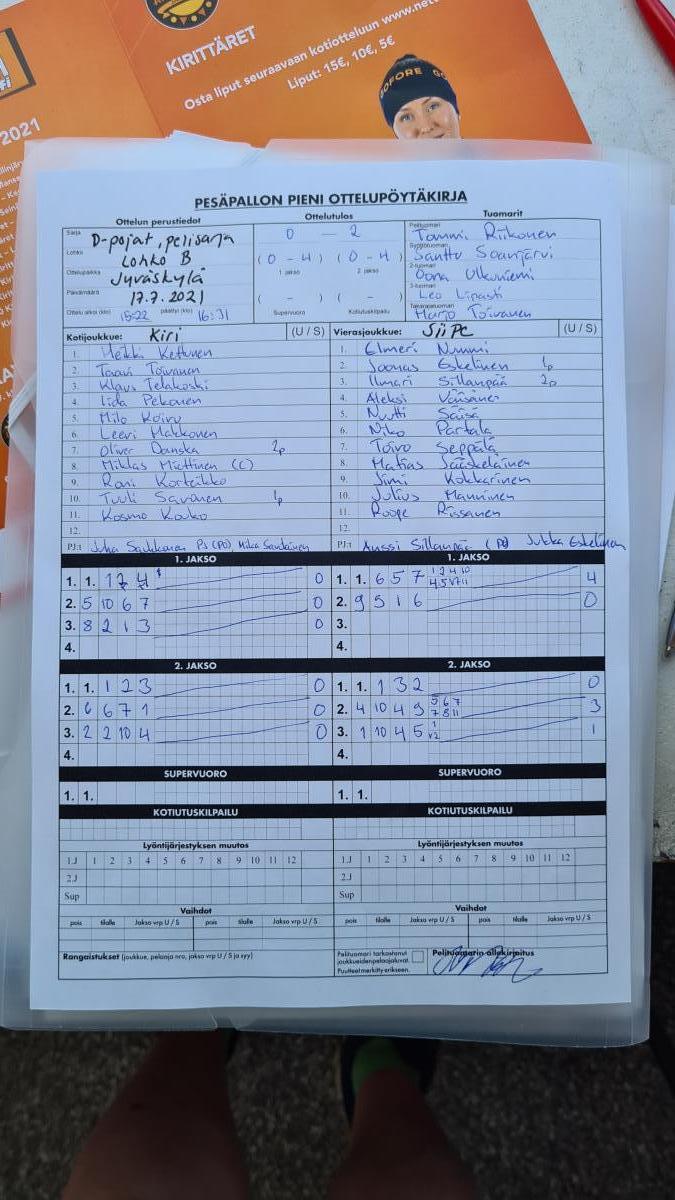 KIRITTÄRET
Osta liput seuraavaan kotiotteluun www.net
Liput: 15€, 10€, 5€
2021
PESÄPALLON PIENI OTTELUPÖYTÄKIRJA
Ottelun perustiedot Ottelutulos Tuomarit
Sarja D-pojat, pelisarja 0 – 2 Pelituomari Tommi Riikonen
Lohko Lohko B (0 – 4) (0 – 4) Syöttötuomari Santtu Soanjärvi
Ottelupaikka Jyväskylä 1. jakso 2. jakso 2-tuomari Oona Ulkuniemi
Päivämäärä 17.7.2021 ( – ) ( – ) 3-tuomari Leo Lipasti
Ottelu alkoi (klo) 15:22 päättyi (klo) 16:31 Supervuoro Kotiutuskilpailu Takarajatuomari Marjo Toivanen
Kotijoukkue: Kiri (U / S) Vierasjoukkue: SiiPe (U / S)
1. Heikki Kettunen 1. Elmeri Nummi
2. Taavi Toivanen 2. Joonas Eskelinen 1p
3. Klaus Telakoski 3. Ilmari Sillanpää 2p
4. Iida Pekonen 4. Aleksi Väisänen
5. Milo Koivu 5. Nuutti Säisä
6. Leevi Makkonen 6. Niko Partala
7. Oliver Danska 2p 7. Toivo Seppälä
8. Miklas Miettinen (C) 8. Matias Jääskeläinen
9. Roni Korteikko 9. Jimi Kokkarinen
10. Tuuli Savonen 1p 10. Julius Manninen
11. Kosmo Kouko 11. Roope Rissanen
12. 12.
PJ:t Juha Saukkonen PJ (PO), Mika Sandainen PJ:t Anssi Sillanpää (PJ) Jukka Eskelinen
1. JAKSO 1. JAKSO
1. 1. 1 2 4 0 1. 1. 6 5 7 4
2. 5 10 6 7 0 2. 9 5 1 6 0
3. 8 2 1 3 0 3.
4. 4.
2. JAKSO 2. JAKSO
1. 1. 1 2 3 0 1. 1. 1 3 2 0
2. 6 6 7 1 0 2. 4 10 4 9 5 6 7 7 8 11 3
3. 2 2 10 4 0 3. 1 10 4 5 1
4. 4.
SUPERVUORO SUPERVUORO
1. 1. 1. 1.
KOTIUTUSKILPAILU KOTIUTUSKILPAILU
Lyöntijärjestyksen muutos Lyöntijärjestyksen muutos
1.J 1 2 3 4 5 6 7 8 9 10 11 12 1.J 1 2 3 4 5 6 7 8 9 10 11 12
2.J 2.J
Sup Sup
Vaihdot Vaihdot
pois tilalle Jakso vrp U / S pois tilalle Jakso vrp U / S pois tilalle Jakso vrp U / S pois tilalle Jakso vrp U / S
Rangaistukset (joukkue, pelaaja nro, jakso vrp U / S ja syy) Pelituomari tarkastanut Pelituomarin allekirjoitus
joukkueiden pelaajaluvat.
Puutteet merkitty erikseen.